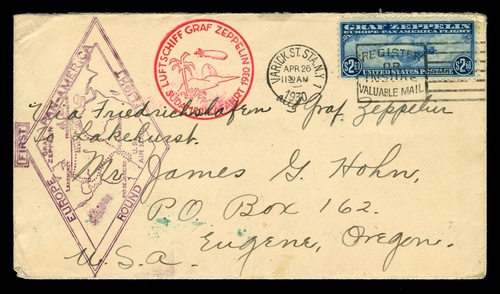 GRAF ZEPPELIN
EUROPE-PAN AMERICA FLIGHT
UNITED STATES POSTAGE
REGISTER
OR
INSURE
VALUABLE MAIL
VARICK ST. STA. N.Y.
APR 26
1930
LUFTSCHIFF GRAF ZEPPELIN 1930
FIRST
EUROPE
PAN AMERICA
ROUND
FLIGHT
Via Friedrichshafen Graf Zeppelin
To Lakehurst.
Mr. James G. Hohn,
P.O. Box 162.
Eugene, Oregon.
U.S.A.